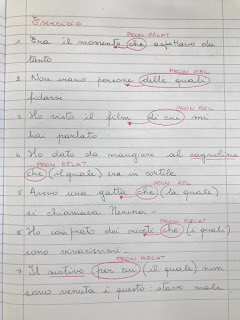 Esercizio
PRON RELAT
1. Era il momento che aspettavo da
tanto
PRON REL
2. Non erano persone delle quali
fidarsi
PRON REL
3. Ho visto il film di cui mi
hai parlato
4. Ho dato da mangiare al cagnolino
PRON RELAT
che (il quale) era in cortile
PRON REL
5. Avevo una gatta che (la quale)
si chiamava Nerina.
PRON RELAT
6. Ho comprato dei criceti che (i quali)
sono vivacissimi.
PRON RELAT
7. Il motivo per cui (il quale) non
sono venuta è questo: stavo male.